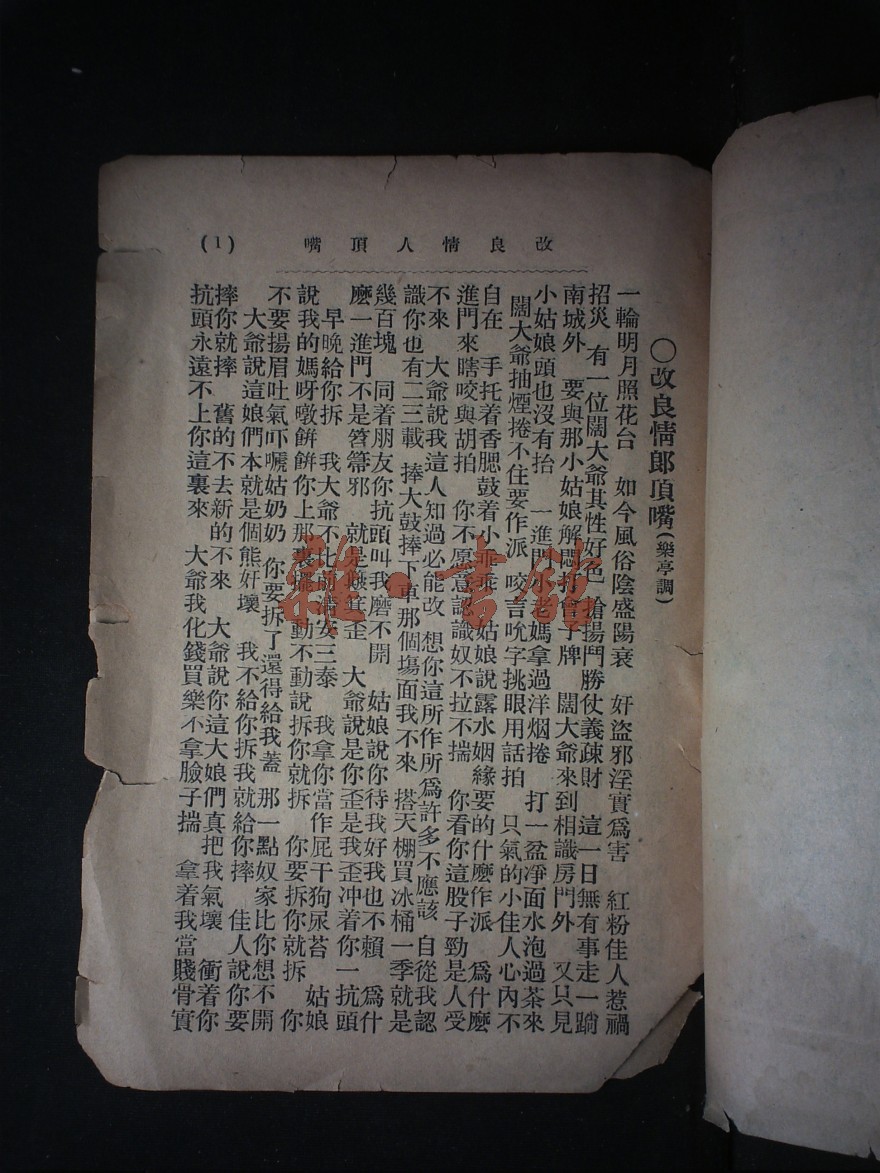 改良情人頂嘴 (1)
〇改良情郎頂嘴(樂亭調)
一輪明月照花台 如今風俗陰盛陽衰 奸盜邪淫實爲害 紅粉佳人惹禍
招災 有一位闊大爺其性好色 搶揚鬥勝仗義疎財 這一日無有事走一蹚
南城外 要與那小姑娘解悶打會子牌 闊大爺來到相識房門外 又只見
小姑娘頭也沒有抬 一進門 媽拿過洋烟捲 打一盆凈面水泡過茶來
闊大爺抽煙捲不住要作派 咬吉吮字挑眼用話拍 只氣的小佳人心內不
自在 手托着香腮鼓着小 姑娘說露水姻緣要的什麽作派 爲什麽
進門來瞎咬與胡拍 你不愿意認識奴不拉不揣 你看你這股子勁是人受
不來 大爺說我這人知過必能改 想你這所作所爲許多不應該 自從我認
識你也有二三載 捧大鼓捧下車那個塲面我不來 搭天棚買冰桶一季就是
幾百塊 同着朋友你抗頭叫我磨不開 姑娘說你待我好我也不賴 爲什
麽一進門不是笤箒邪 就是 箕歪 大爺說是你歪是我歪沖着你一抗頭
早晚給你拆 我大爺不比 安三泰 我拿你當作屁干狗尿苔 姑娘
說我的媽呀暾餅餅你上那裏 動不動說拆你就拆 你要拆你就拆 你
不要揚眉吐氣吓嚇姑奶奶 你要拆了還得給我蓋 那一點奴家比你想不開
大爺說這娘們本就是個熊奸壞 我不給你拆我就給你摔 佳人說你要
摔你就摔 舊的不去新的不來 大爺說你這大娘們真把我氣壞 衝着你
抗頭永遠不上你這裏來 大爺我化錢買樂不拿臉子揣 拿着我當賤骨實
雜·書館